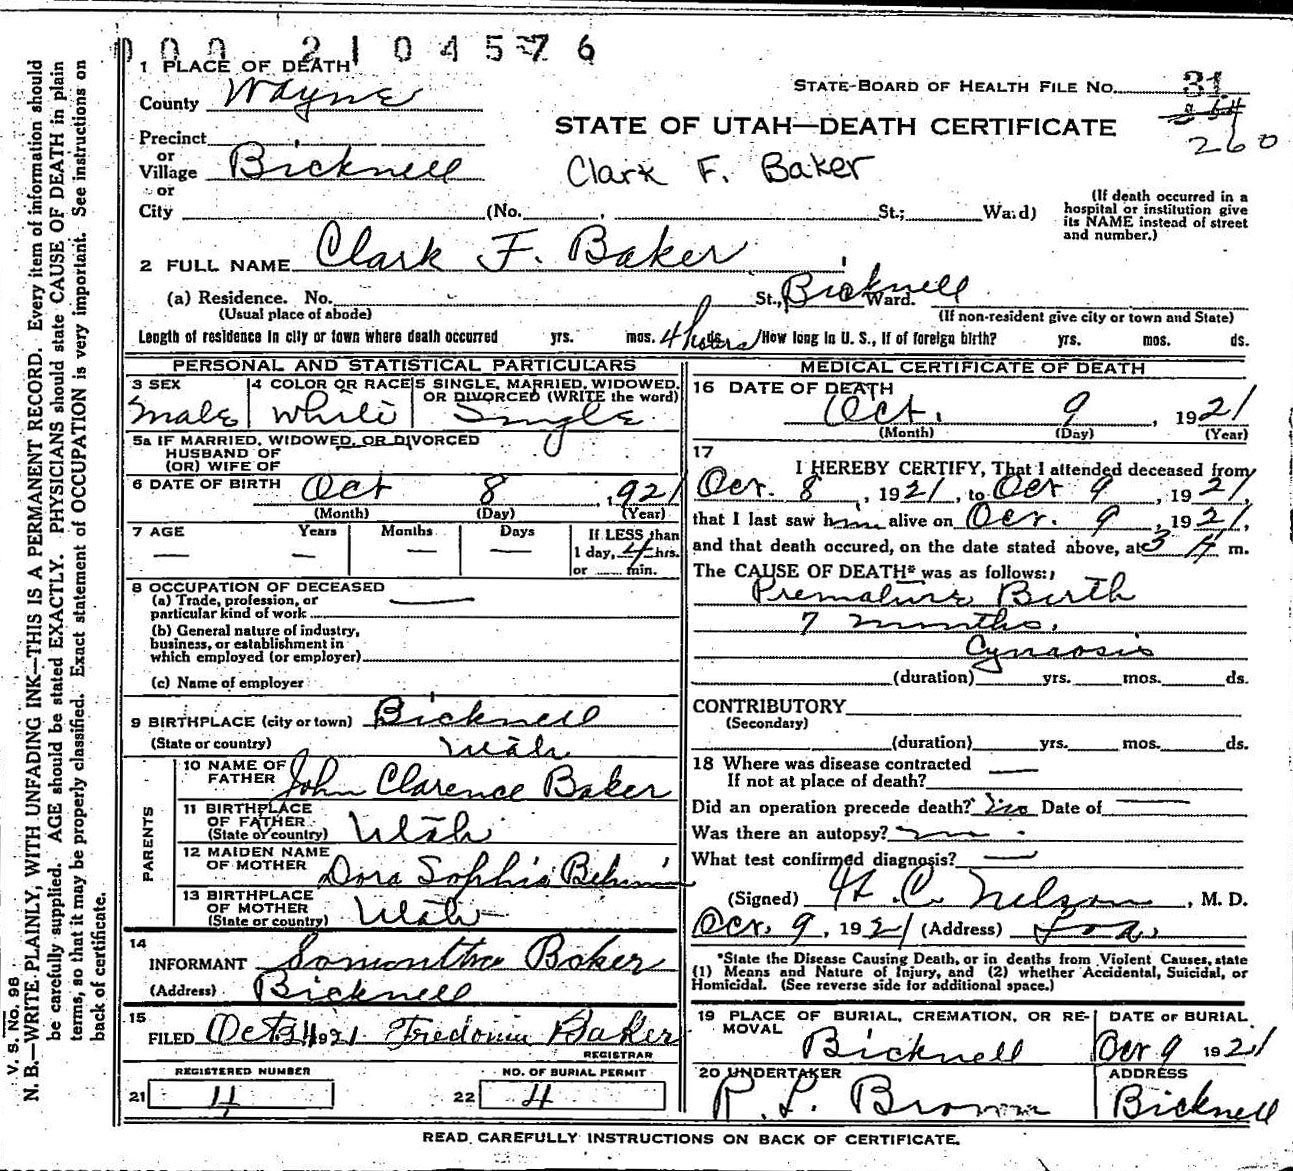 000 2104576
1 PLACE OF DEATH
County Wayne
STATE-BOARD OF HEALTH FILE No. 31
264
260
STATE OF UTAH—DEATH CERTIFICATE
Clark F. Baker
Precinct
or
Village Bicknell
or
City (No. , St.; Ward)
(If death occurred in a
hospital or institution give
its NAME instead of street
and number.)
2 FULL NAME Clark F. Baker
(a) Residence. No. St., Bicknell Ward.
(Usual place of abode)
(If non-resident give city or town and State)
Length of residence in city or town where death occurred yrs. mos. 4 hours ds. How long in U. S., if of foreign birth? yrs. mos. ds.
PERSONAL AND STATISTICAL PARTICULARS
3 SEX
Male
4 COLOR OR RACE
White
5 SINGLE, MARRIED, WIDOWED,
OR DIVORCED (WRITE the word)
Single
5a IF MARRIED, WIDOWED, OR DIVORCED
HUSBAND OF
(OR) WIFE OF
6 DATE OF BIRTH Oct 8, 1921
(Month) (Day) (Year)
7 AGE Years Months Days If LESS than
— — — 1 day, 4 hrs.
or min.
8 OCCUPATION OF DECEASED
(a) Trade, profession, or
particular kind of work
(b) General nature of industry,
business, or establishment in
which employed (or employer)
(c) Name of employer
9 BIRTHPLACE (city or town) Bicknell
(State or country) Utah
PARENTS
10 NAME OF
FATHER John Clarence Baker
11 BIRTHPLACE
OF FATHER
(State or country) Utah
12 MAIDEN NAME
OF MOTHER Dora Sophia
13 BIRTHPLACE
OF MOTHER
(State or country) Utah
14
INFORMANT Samantha Baker
(Address) Bicknell
15
FILED Oct 1921 Fredonia Baker
REGISTRAR
REGISTERED NUMBER
21 4
NO. OF BURIAL PERMIT
22 4
MEDICAL CERTIFICATE OF DEATH
16 DATE OF DEATH
Oct. 9, 1921
(Month) (Day) (Year)
17
I HEREBY CERTIFY, That I attended deceased from
Oct. 8, 1921, to Oct 9, 1921,
that I last saw him alive on Oct. 9, 1921,
and that death occured, on the date stated above, at 3 A m.
The CAUSE OF DEATH* was as follows:
Premature Birth
7 months.
Cynaosis
(duration) yrs. mos. ds.
CONTRIBUTORY
(Secondary)
(duration) yrs. mos. ds.
18 Where was disease contracted
If not at place of death?
Did an operation precede death? no Date of
Was there an autopsy? no
What test confirmed diagnosis?
(Signed) H. C. Nelson, M. D.
Oct. 9, 1921 (Address) Loa.
*State the Disease Causing Death, or in deaths from Violent Causes, state
(1) Means and Nature of Injury, and (2) whether Accidental, Suicidal, or
Homicidal. (See reverse side for additional space.)
19 PLACE OF BURIAL, CREMATION, OR RE-
MOVAL
Bicknell
DATE OF BURIAL
Oct 9 1921
20 UNDERTAKER
R. L. Brown
ADDRESS
Bicknell
READ CAREFULLY INSTRUCTIONS ON BACK OF CERTIFICATE.
V. S. No. 98
N. B.—WRITE PLAINLY, WITH UNFADING INK—THIS IS A PERMANENT RECORD. Every item of information should
be carefully supplied. AGE should be stated EXACTLY. PHYSICIANS should state CAUSE OF DEATH in plain
terms, so that it may be properly classified. Exact statement of OCCUPATION is very important. See instructions on
back of certificate.